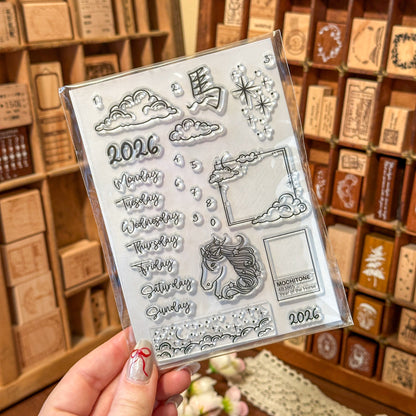 馬
2026
Monday
Tuesday
Wednesday
Thursday
Friday
Saturday
Sunday
MOCHITONE
Year of the Horse
2026